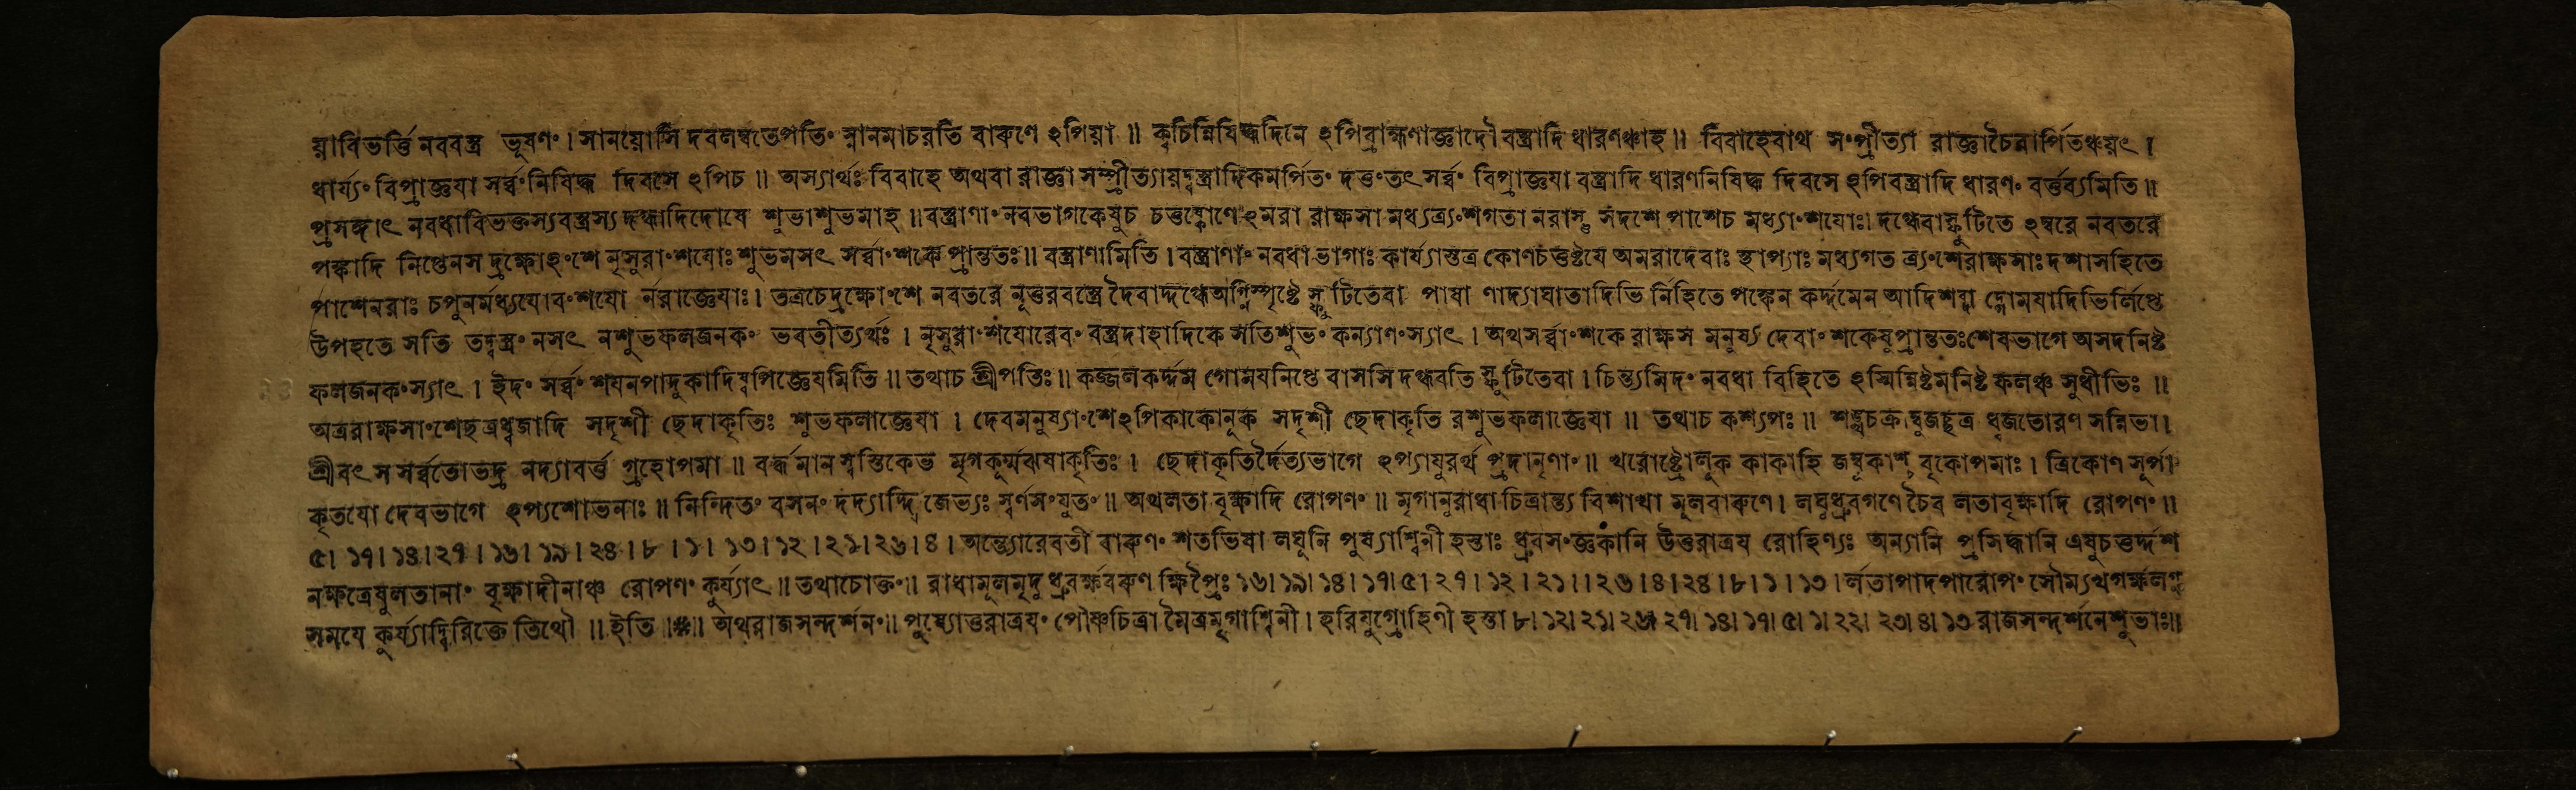 য়াবিভর্ত্তি নববস্ত্র ভূষণং । সানয়োসি দবলম্বতেপতিং স্নানমাচরতি বারুণে ঽপিয়া ॥ ক্বচিন্নিষিদ্ধদিনে ঽপিব্রাহ্মণাজ্ঞাদৌ বস্ত্রাদি ধারণঞ্চাহ ॥ বিবাহেবাথ সংপ্রীত্যা রাজ্ঞাচৈবার্পিতঞ্চয়ৎ ।
ধার্য্যং বিপ্রাজ্ঞযা সর্ব্বং নিষিদ্ধ দিবসে ঽপিচ ॥ অস্যার্থঃ বিবাহে অথবা রাজ্ঞা সম্প্রীত্যায়দ্বস্ত্রাদিকমর্পিতং দত্তং তৎ সর্ব্বং বিপ্রাজ্ঞযা বস্ত্রাদি ধারণনিষিদ্ধ দিবসে ঽপিবস্ত্রাদি ধারণং বর্ত্তব্যমিতি ॥
প্রসঙ্গাৎ নবধাবিভক্তস্যবস্ত্রস্যদগ্ধাদিদোষে শুভাশুভমাহ ॥ বস্ত্রাণাং নবভাগকেষুচ চত্তষ্কোণেঽমরা রাক্ষসা মধ্যত্র্যংশগতা নরাস্তু সদশে পাশেচ মধ্যাংশযোঃ। দগ্ধেবাস্ফুটিতে ঽম্বরে নবতরে
পঙ্কাদি নিপ্তেনস দ্রক্ষোঽংশে নৃসুরাংশযোঃ শুভমসৎ সর্ব্বাংশকে প্রান্ততঃ ॥ বস্ত্রাণামিতি । বস্ত্রাণাং নবধা ভাগাঃ কার্য্যাস্তত্র কোণচত্তষ্টযে অমরাদেবাঃ স্থাপ্যাঃ মধ্যগত ত্র্যংশেরাক্ষসাঃ দশাসহিতে
পাশেনরাঃ চপুনর্মধ্যযোবংশযো র্নরাজ্ঞেযাঃ । তত্রচেদ্রক্ষোংশে নবতরে নূত্তরবস্ত্রে দৈবাদ্দগ্ধেঅগ্নিস্পৃষ্টে স্ফুটিতেবা পাষা ণাদ্যাঘাতাদিভি র্নিহিতে পঙ্কেন কর্দ্দমেন আদিশব্দা দ্গোমযাদিভির্লিপ্তে
উপহতে সতি তদ্বস্ত্রং নসৎ নশুভফলজনকং ভবতীত্যর্থঃ । নৃসুরাংশযোরেবং বস্ত্রদাহাদিকে সতিশুভং কন্যাণংস্যাৎ । অথসর্ব্বাংশকে রাক্ষস মনুষ্য দেবাংশকেষুপ্রান্ততঃশেষভাগে অসদনিষ্ট
ফলজনকংস্যাৎ । ইদং সর্ব্বং শযনপাদুকাদিষ্বপিজ্ঞেযমিতি ॥ তথাচ শ্রীপতিঃ ॥ কজ্জলকর্দ্দম গোমযনিপ্তে বাসসি দগ্ধবতি স্ফুটিতেবা । চিন্ত্যমিদং নবধা বিহিতে ঽস্মিন্নিষ্টমনিষ্ট ফলঞ্চ সুধীভিঃ ॥
অত্ররাক্ষসাংশেছত্রধ্বজাদি সদৃশী ছেদাকৃতিঃ শুভফলাজ্ঞেযা । দেবমনুষ্যাংশেঽপিকাকোনূক সদৃশী ছেদাকৃতি রশুভফলাজ্ঞেযা ॥ তথাচ কশ্যপঃ ॥ শঙ্খচক্রাম্বুজচ্ছত্র ধ্বজতোরণ সন্নিভা।
শ্রীবৎ স সর্ব্বতোভদ্র নদ্যাবর্ত্ত গ্রহোপমা ॥ বর্দ্ধমান স্বস্তিকেভ মৃগকূর্ম্মঝষাকৃতিঃ । ছেদাকৃতির্দৈত্যভাগে ঽপ্যাযুরর্থ প্রদানৃণাং ॥ খরোষ্ট্রোলূক কাকাহি জম্বূকাশ্ব বৃকোপমাঃ । ত্রিকোণ সূর্পা
কৃতযো দেবভাগে ঽপ্যশোভনাঃ ॥ নিন্দিতং বসনং দদ্যাদ্দ্বিজেভ্যঃ স্বর্ণসংযুতং ॥ অথলতা বৃক্ষাদি রোপণং ॥ মৃগানুরাধা চিত্রান্ত্য বিশাখা মূলবারুণে । লঘুধ্রুবগণে চৈব লতাবৃক্ষাদি রোপণং ॥
৫। ১৭। ১৪। ২৭ । ১৬। ১৯। ২৪। ৮ । ১। ১৩। ১২। ২১। ২৬। ৪ । অন্ত্যোরেবতী বারুণং শতভিষা লঘুনি পুষ্যাশ্বিনী হস্তাঃ ধ্রুবসংজ্ঞকানি উত্তরাত্রয রোহিণ্যঃ অন্যানি প্রসিদ্ধানি এষুচত্তর্দ্দশ
নক্ষত্রেষুলতানাং বৃক্ষাদীনাঞ্চ রোপণং কুর্য্যাৎ ॥ তথাচোক্তং ॥ রাধামূলমৃদু ধ্রুবর্ক্ষবরুণ ক্ষিপ্রৈঃ ১৬। ১৯। ১৪। ১৭। ৫। ২৭। ১২। ২১। । ২৬। ৪। ২৪। ৮। ১। ১৩। র্লতাপাদপারোপং সৌম্যখগর্ক্ষলগ্ন
সমযে কুর্য্যাদ্বিরিক্তে তিথৌ ॥ ইতি ॥ ॥ অথরাজসন্দর্শনং ॥ পুষ্যোত্তরাত্রযং পৌষ্ণচিত্রা মৈত্রমৃগাশ্বিনী । হরিযুগ্রোহিণী হস্তা ৮। ১২। ২১। ২৬। ২৭। ১৪। ১৭। ৫। ১। ২২। ২৩। ৪। ১৩ রাজসন্দর্শনেশুভাঃ॥